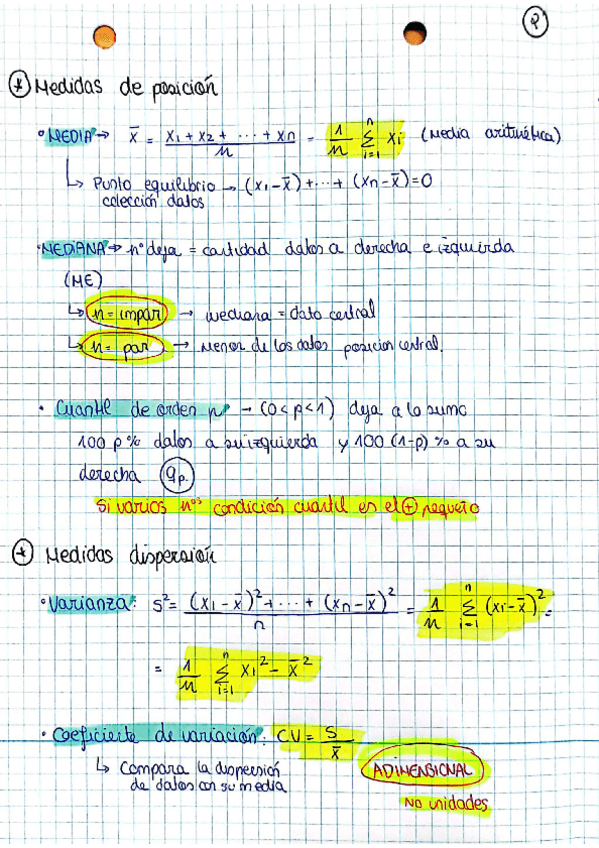 2
* Medidas de posición
° MEDIA → x̄ = (x₁ + x₂ + ... + xn)/n = 1/n Σᵢ₌₁ⁿ xᵢ (media aritmética)
↳ Punto equilibrio → (x₁ - x̄) + ... + (xn - x̄) = 0
colección datos
· MEDIANA → nº deja = cantidad datos a derecha e izquierda
(ME)
↳ n = impar → mediana = dato central
↳ n = par → menor de los datos posición central.
· Cuantil de orden p → (0 < p < 1) deja a lo sumo
100 p % datos a su izquierda y 100 (1-p) % a su
derecha qp
Si varios nºs condición cuantil es el + pequeño
* Medidas dispersión
° Varianza: S² = ((x₁ - x̄)² + ... + (xn - x̄)²)/n = 1/n Σᵢ₌₁ⁿ (xᵢ - x̄)² =
= 1/n Σᵢ₌₁ⁿ xᵢ² - x̄²
· Coeficiente de variación: CV = S/x̄
↳ Compara la dispersión ADIMENSIONAL
de datos con su media
No unidades